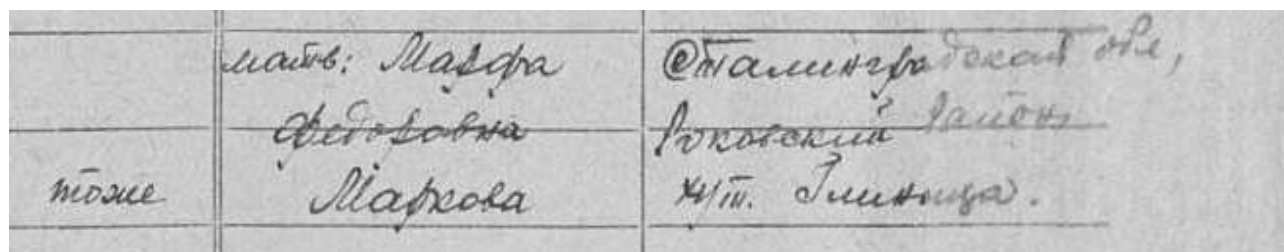 мать: Марфа
Федоровна
тоже Маркова
Сталинградская обл,
Роковский район
х/т. Глинища.